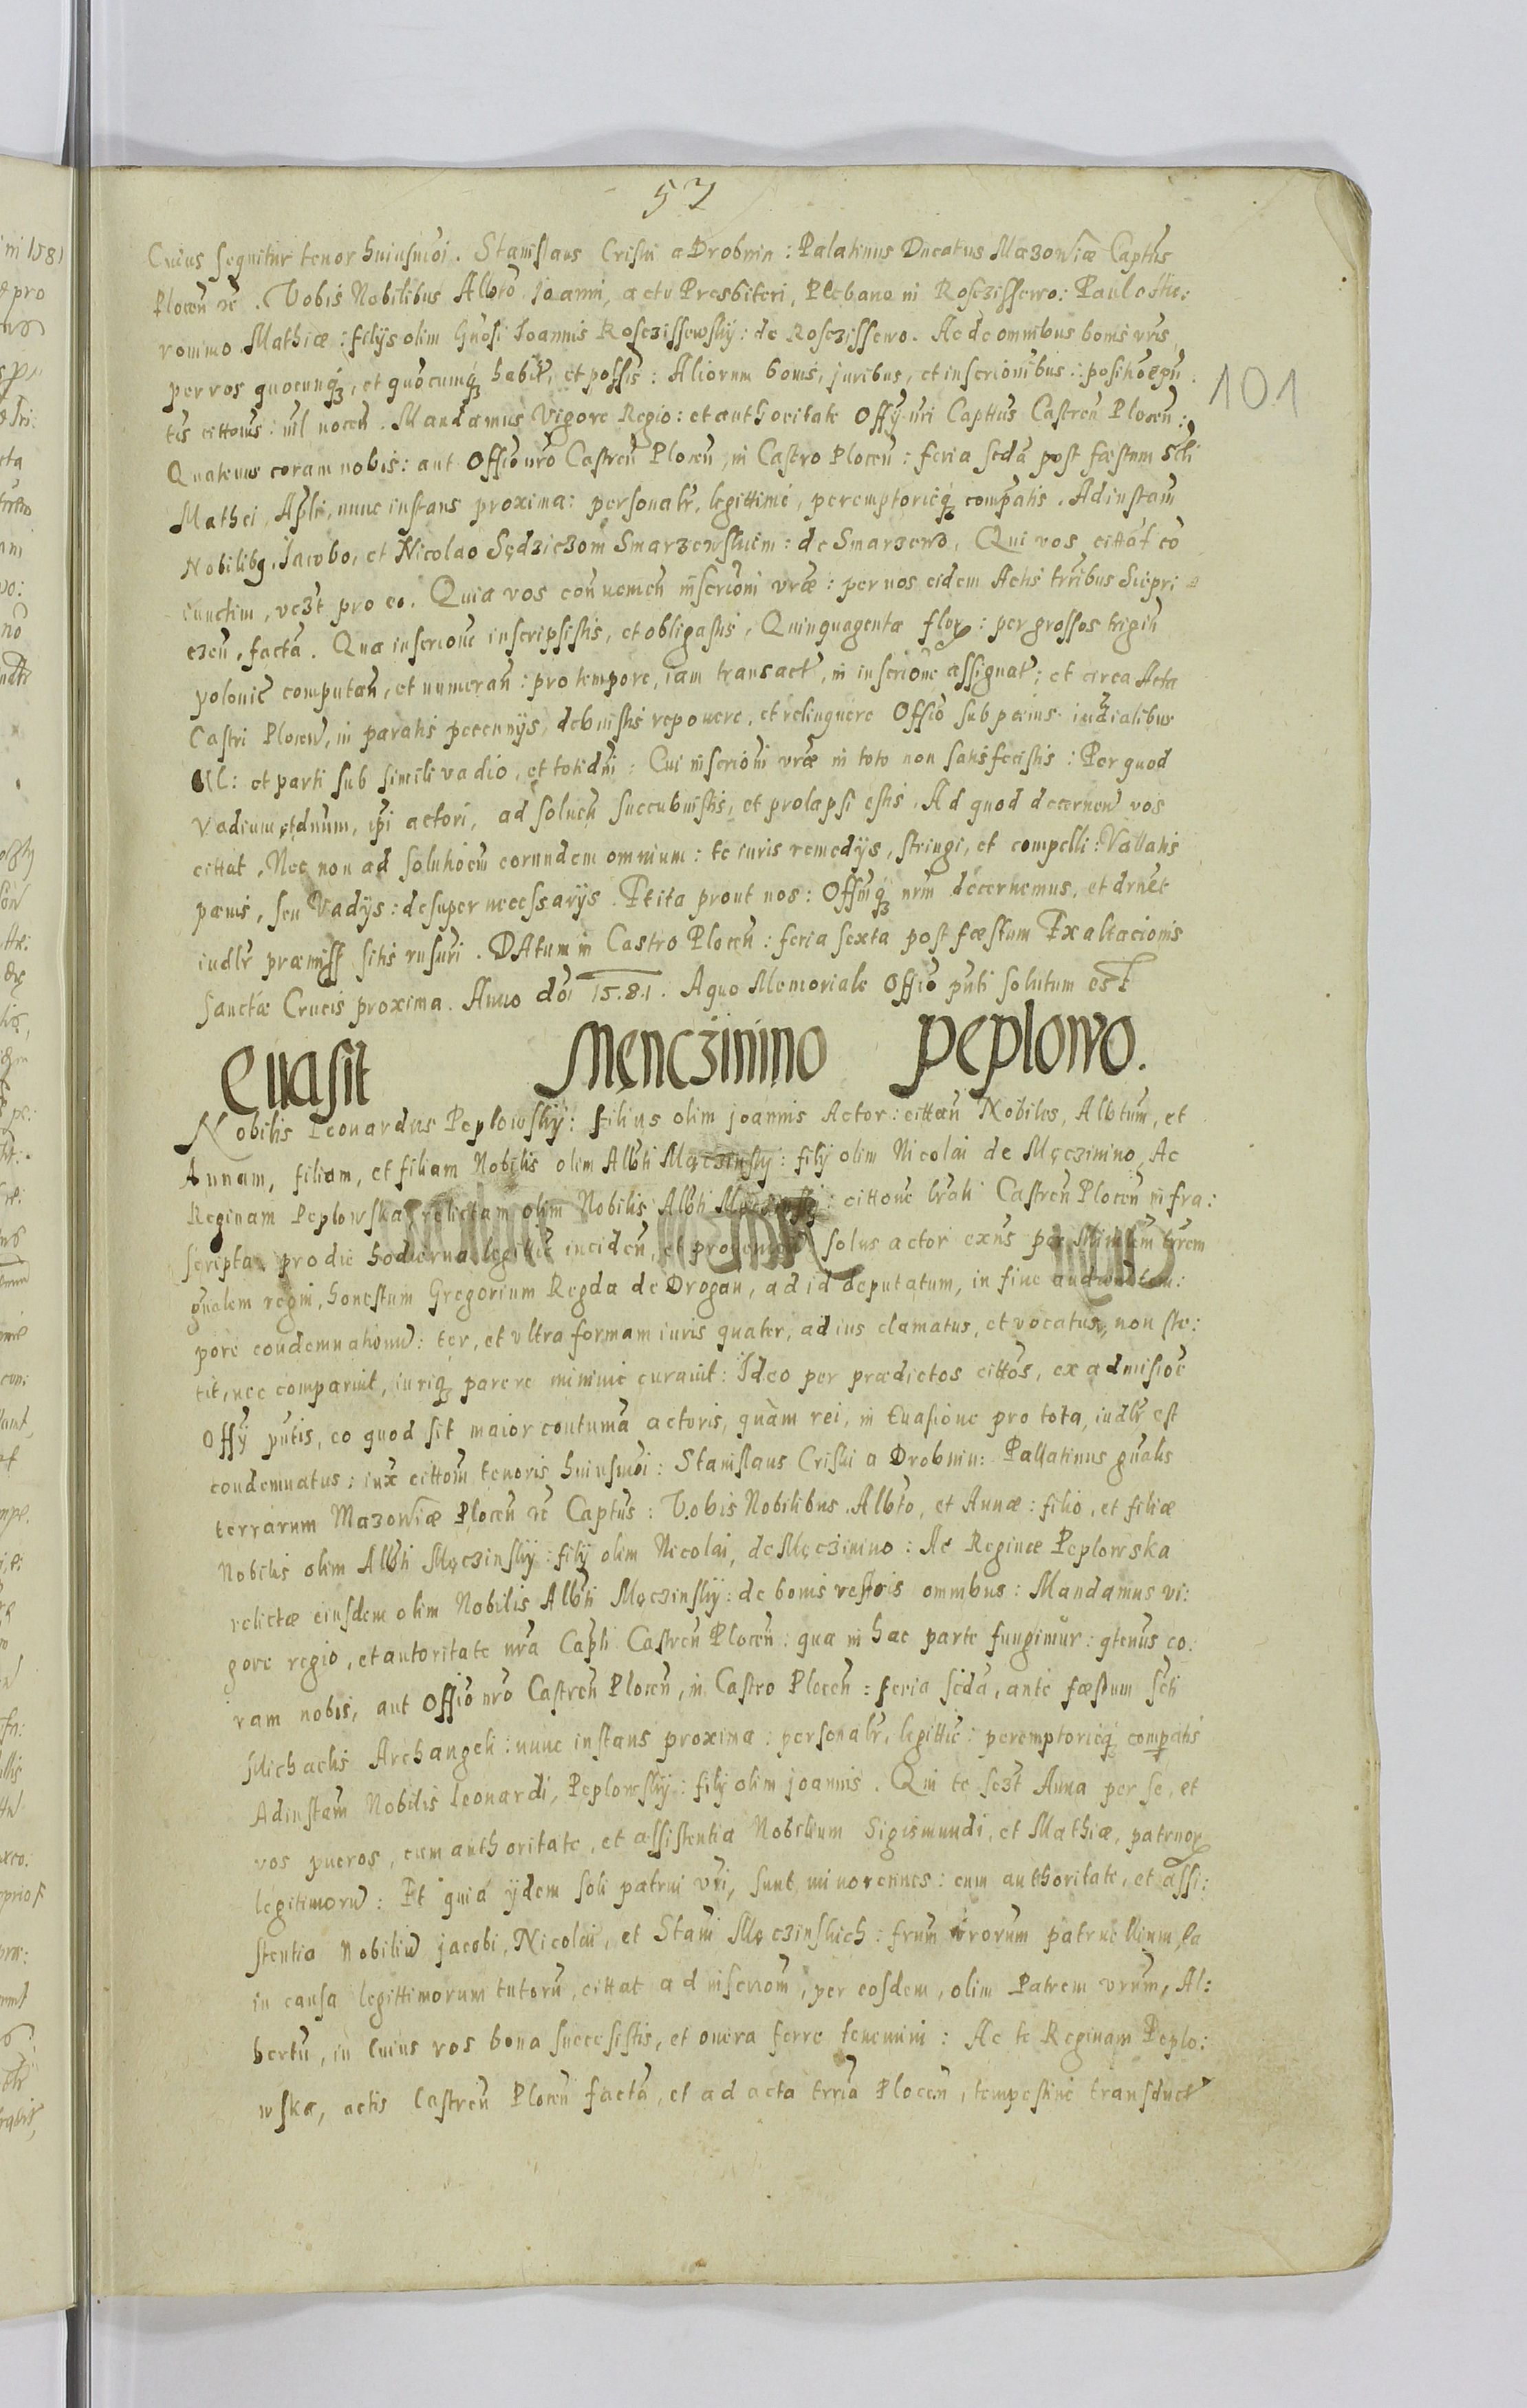 57
101
Cuius sequitur tenor huiusmoi. Stanislaus Criski a Drobnin: Palatinus Ducatus Mazowiæ Captus
Plocen̄ &c. Vobis Nobilibus Albro Joanni, actu Presbiteri, Plebano in Roscziffewo: Paulo Hie:
ronimo Mathiæ: filys olim Gnosi Joannis Roscziffewsky: de Roscziffewo. Ac de omnibus bonis vris,
per vos quocunqȝ, et quocumqȝ habit, et possis: Aliorum bonis, juribus, et inscrionibus:
tis cittonis: nil nocen̄. Mandamus Vigore Regio: et authoritate Offy nri Capttus Castren̄ Plocen̄:
Quatenus coram nobis: aut Offio nro Castren̄ Plocen̄, in Castro Plocen̄: feria scda post fæstum Scti
Mathei Apli, nunc instans proxima: personalr, legittime, peremptorieqȝ compatis. Ad instam
Nobilibȝ Jacobo, et Nicolao Sędziczom Smarzewskiem: de Smarzewo, Qui vos cittat co
iunctim, vezt pro eo. Quia vos con̄ uenien̄ inscrioni vræ: per nos eidem Actis trribus Siepri
czen̄, facta. Qua inscrione inscripsistis, et obligastis, Quinquagenta flor: per grossos trigin
polonic computan̄, et numeran̄: pro tempore, iam transact, in inscrione assignat; et circa Acta
Castri Plocen̄, in paratis pecunnys, debuistis reponere, et relinquere Offio sub pœnis iudialibus
Ul: et parti sub simili vadio, et totidni: Cui inscrioni vræ in toto non satisfecistis: Per quod
Vadium et dnum, ipi actori, ad soluen̄ succubuistis, et prolapsi estis. Ad quod decernen̄ vos
cittat, Nec non ad solutioem eorundem omnium: te iuris remedys, stringi, et compelli: Vallatis
pœnis, seu Vadys: desuper necessarys. Et ita prout nos: Offmqȝ nrm decernemus, et drnet
iudlr præmiss sitis rnsuri. DAtum in Castro Plocen̄: feria sexta post fæstum Exaltacionis
Sanctæ Crucis proxima. Anno doi 15.81. A quo Memoriale Offio pnti solutum est
Euasit Męnczinino peplowo.
Nobilis Leonardus Peplowsky: filius olim joannis Actor: cittan̄ Nobiles, Albtum, et
Annam, filium, et filiam Nobilis olim Albti Męczinsky: fily olim Nicolai de Męczinino, Ac
Reginam Peplowska, relictam olim Nobilis Albti Męczinsky: cittone lrali Castren̄ Plocen̄ infra:
scripta, pro die hodierna legittie inciden̄, et prouenien̄ solus actor exns per Ministm trrem
gnalem regni, honestum Gregorium Regda de Drogan, ad id deputatum, in fine tem:
pore condemnationū: ter, et vltra formam iuris quater, ad ius clamatus, et vocatus, non ste:
tit, nec comparuit, iuriqȝ parere minime curauit: Ideo per prædictos cittos, ex admisioe
Offy pntis, eo quod sit maior contuma actoris, quàm rei, in Euasione pro tota, iudlr est
condemnatus: iux cittom tenoris huiusmoi: Stanislaus Criski a Drobnin: Pallatinus gnalis
terrarum Mazowiæ Plocen̄ &c Captus: Vobis Nobilibus Albto, et Annæ: filio, et filiæ
Nobilis olim Albti Męczinsky: fily olim Nicolai, de Męczinino: Ac Reginæ Peplowska
relictæ eiusdem olim Nobilis Albti Męczinsky: de bonis vestris omnibus: Mandamus vi:
gore regio, et autoritate nra Capti Castren̄ Plocen̄: qua in hac parte fungimur: qtenus co:
ram nobis, aut Offio nro Castren̄ Plocen̄, in Castro Plocen̄: feria scda, ante fæstum scti
Michaelis Archangeli: nunc instans proxima: personalr, legittie: peremptorieqȝ compatis
Ad instam Nobilis Leonardi, Peplowsky: fily olim joannis. Qui te sezt Anna per se, et
vos pueros, cum authoritate, et assistentia Nobilium Sigismundi, et Mathiæ, patruor
legitimorū: Et quia ydem soli patrui vri, sunt minorennes: cum authoritate, et assi:
stentia Nobiliū jacobi, Nicolai, et Stani Męczinskich: frum vrorum patruellium, ea
in causa legittimorum tutorū, cittat ad inscriom, per eosdem, olim Patrem vrum, Al:
bertū, in cuius vos bona succesistis, et onera ferre tenemini: Ac te Reginam Peplo:
wska, actis Castren̄ Plocen̄ facta, et ad acta trria Plocen̄, tempestiue transduct